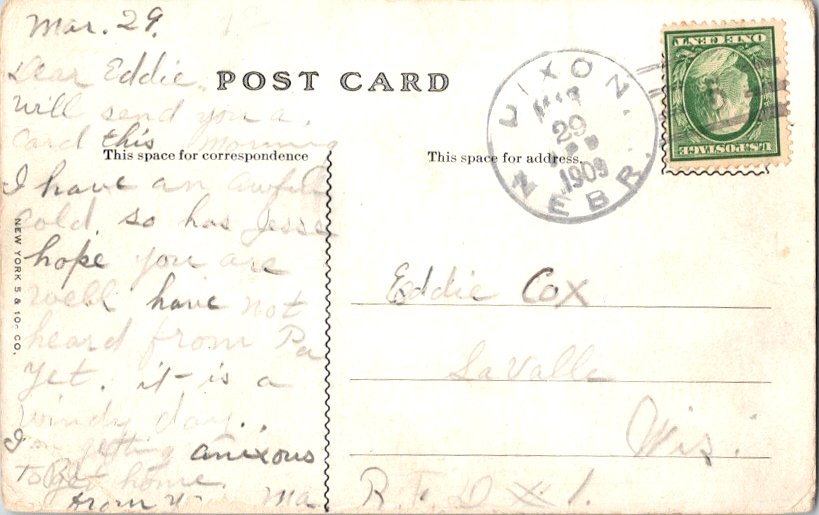 Mar. 29.
Dear Eddie,
will send you a
card this morning
I have an awful
cold, so has Jesse
hope you are
well have not
heard from Pa
yet. it is a
windy day.
I'm getting anixous
to get home.
from Ma
POST CARD
This space for correspondence
This space for address.
NEW YORK 5 & 10c CO.
DIXON,
MAR
29
1909
NEBR.
ONE CENT
U.S. POSTAGE
Eddie Cox
LaValle
Wis.
R.F.D. X 1.